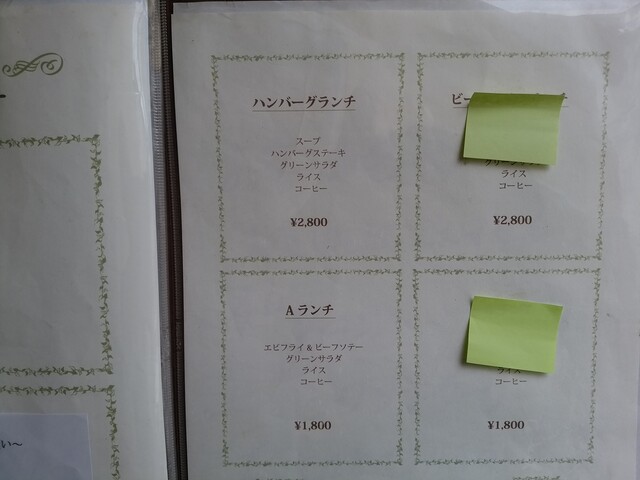 ハンバーグランチ
スープ
ハンバーグステーキ
グリーンサラダ
ライス
コーヒー
¥2,800
グリーンサラダ
ライス
コーヒー
¥2,800
Aランチ
エビフライ&ビーフソテー
グリーンサラダ
ライス
コーヒー
¥1,800
ライス
コーヒー
¥1,800
い〜